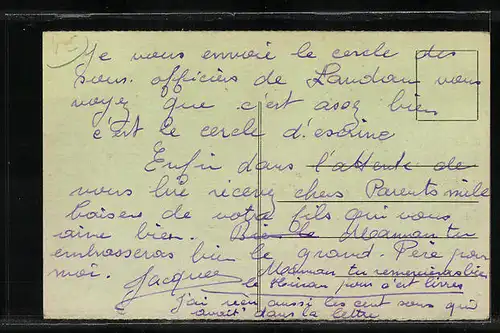 Je vous envoie le cercle des
sous. officiers de Landau vous
voyez que c'est assez bien
c'est le cercle d'escrime
Enfin dans l'attente de
vous lire recevez chers Parents mille
baiser de votre fils qui vous
aime bien. Bie le Maman tu
embrasseras bien le grand. Père pour
moi. Jacques Maman tu remercieras bien
le pour c'est livres
J'ai reçu aussi les cent sous qui
avait dans la lettre